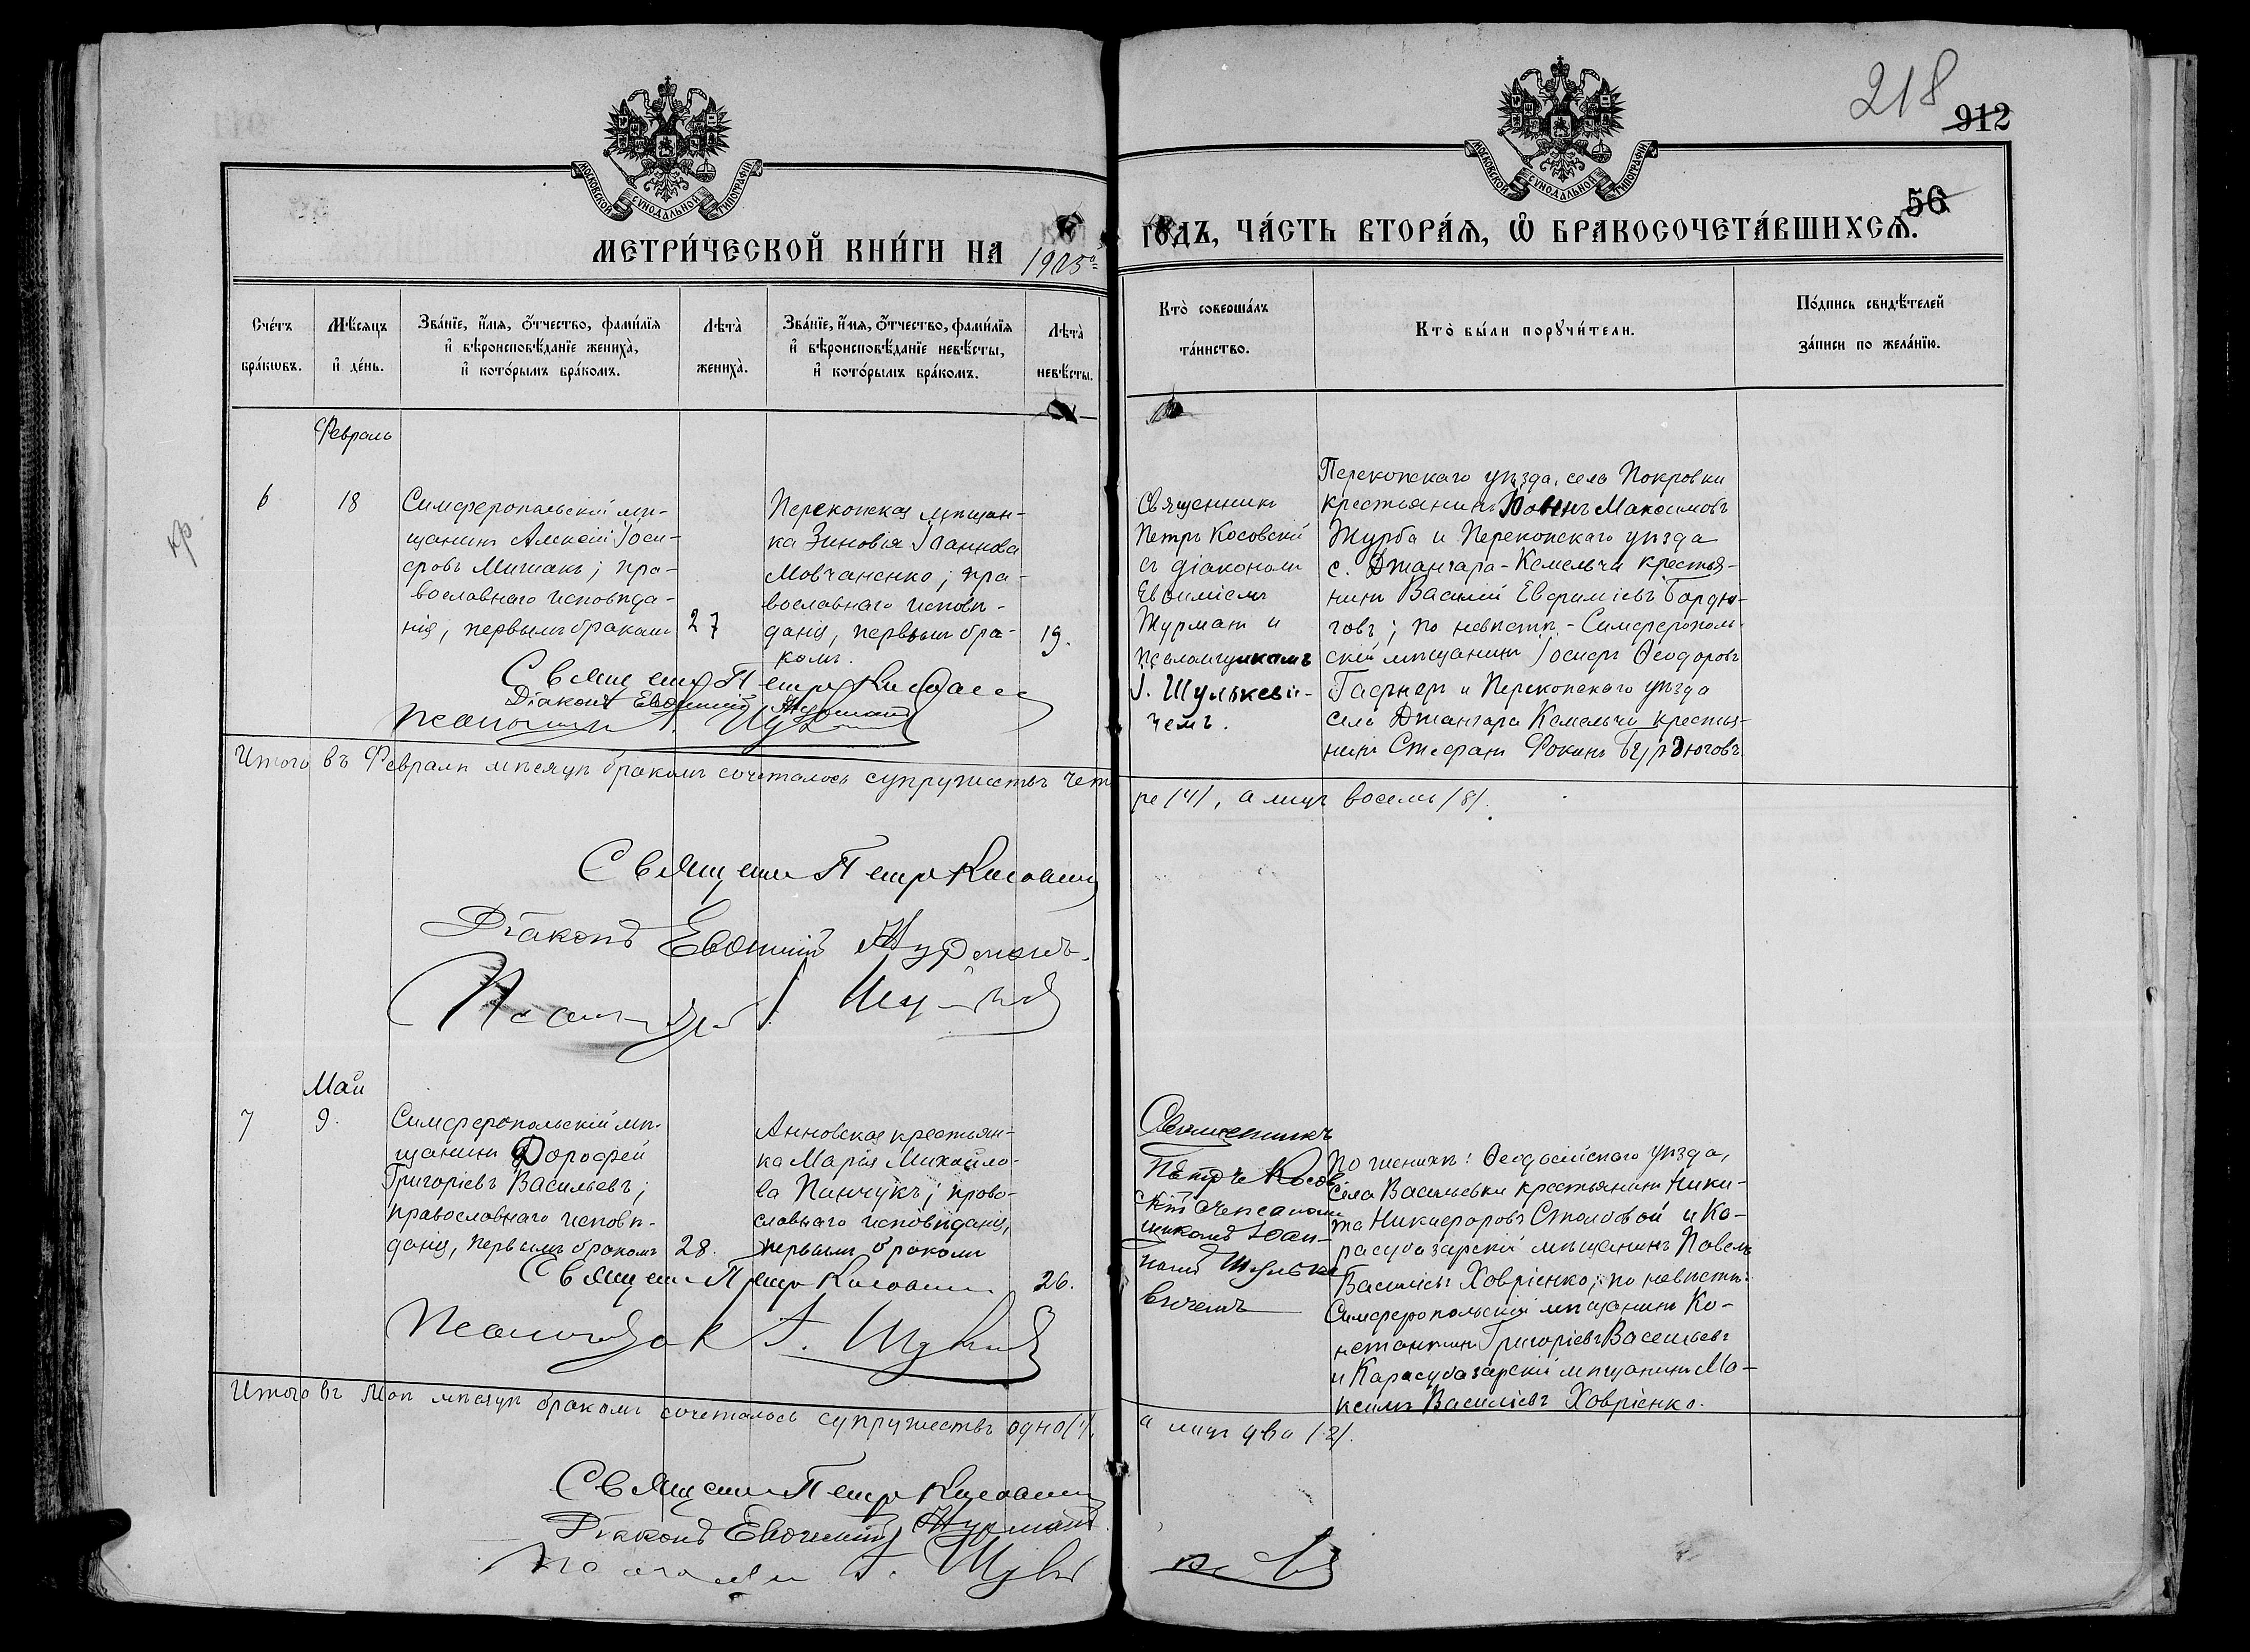 218
912
56
МОСКОВСКОЙ СѴНОДАЛЬНОЙ ТИПОГРАФІИ
МОСКОВСКОЙ СѴНОДАЛЬНОЙ ТИПОГРАФІИ
МЕТРИ́ЧЕСКОЙ КНИ́ГИ НА 1905й ГОДЪ, ЧА́СТЬ ВТОРА́Ѧ, Ѡ҆ БРАКОСОЧЕТА́ВШИХСѦ.
Сче́тъ
бра́кѡвъ.
Мѣ́сѧцъ
и҆ де́нь.
Зва́нїе, и҆́мѧ, ѻ҆́тчество, фами́лїѧ
и҆ вѣроисповѣ́данїе жениха̀,
и҆ кото́рымъ бра́комъ.
Лѣта̀
жениха̀.
Зва́нїе, и҆́мѧ, ѻ҆́тчество, фами́лїѧ
и҆ вѣроисповѣ́данїе невѣ́сты,
и҆ кото́рымъ бра́комъ.
Лѣта̀
невѣ́сты.
Кто̀ соверша́лъ
та́инство.
Кто̀ бы́ли порꙋчи́тели.
По́дпись свидѣ́телей
за́писи по жела́нїю.
кр.
Февраль
6
18
Симферопольскій мѣ-
щанинъ Алексій Іоси-
фовъ Мишакъ; пра-
вославнаго исповѣда-
нія, первымъ бракомъ
27
Перекопская мѣщан-
ка Зиновія Іоаннова
Мовчаненко; пра-
вославнаго исповѣ-
данія, первымъ бра-
комъ.
19.
Священникъ
Петръ Косовскій
съ діакономъ
Евѳиміемъ
Журманъ и
псаломщикомъ
І. Шулькеви-
чемъ.
Перекопскаго уѣзда, села Покровки
крестьянинъ Іовинъ Максимовъ
Журба и Перекопскаго уѣзда
с. Джангара-Кемельчи крестья-
нинъ Василій Евфиміевъ Бордю-
говъ; по невѣстѣ - Симферополь-
скій мѣщанинъ Іосифъ Ѳеодоровъ
Гафнеръ и Перекопскаго уѣзда
села Джангара Кемельчи крестья-
нинъ Стефанъ Фокинъ Бурдюговъ
Священ Петръ Косовскі
Діаконъ Евѳимій Журманъ
Псаломщи І. Шульк
Итого въ Февралѣ мѣсяцѣ бракомъ сочеталось супружествъ четы
ре /4/, а лицъ восемь /8/.
Священ Петръ Косовскій
Діаконъ Евѳимій Журманъ.
Псаломщи І. Шульк
Май
7
9.
Симферопольскій мѣ-
щанинъ Дорофей
Григоріевъ Васильевъ;
православнаго исповѣ-
данія, первымъ бракомъ
28.
Анновская крестьян-
ка Марія Михайло-
ва Панчукъ; право-
славнаго исповѣданія,
первымъ бракомъ
26.
Священникъ
Петръ Косов
скій съ псалом
щикомъ Іоан-
номъ Шульке
вичемъ
По женихѣ: Ѳеодосійскаго уѣзда,
села Васильевки крестьянинъ Ники-
та Никифоровъ Столбовой и Ка-
расубазарскій мѣщанинъ Павелъ
Василіевъ Ховріенко; по невѣстѣ:
Симферопольскій мѣщанинъ Ко-
нстантинъ Григоріевъ Васильевъ
и Карасубазарскій мѣщанинъ Ма-
ксимъ Василіевъ Ховріенко.
Священ Петръ Косовскі
Псаломщик І. Шульк
Итого въ Маѣ мѣсяцѣ бракомъ сочеталось супружествъ одно /1/,
а лицъ два /2/.
Священ Петръ Косовскій
Діаконъ Евѳимій Журманъ
Псаломщи І. Шульк